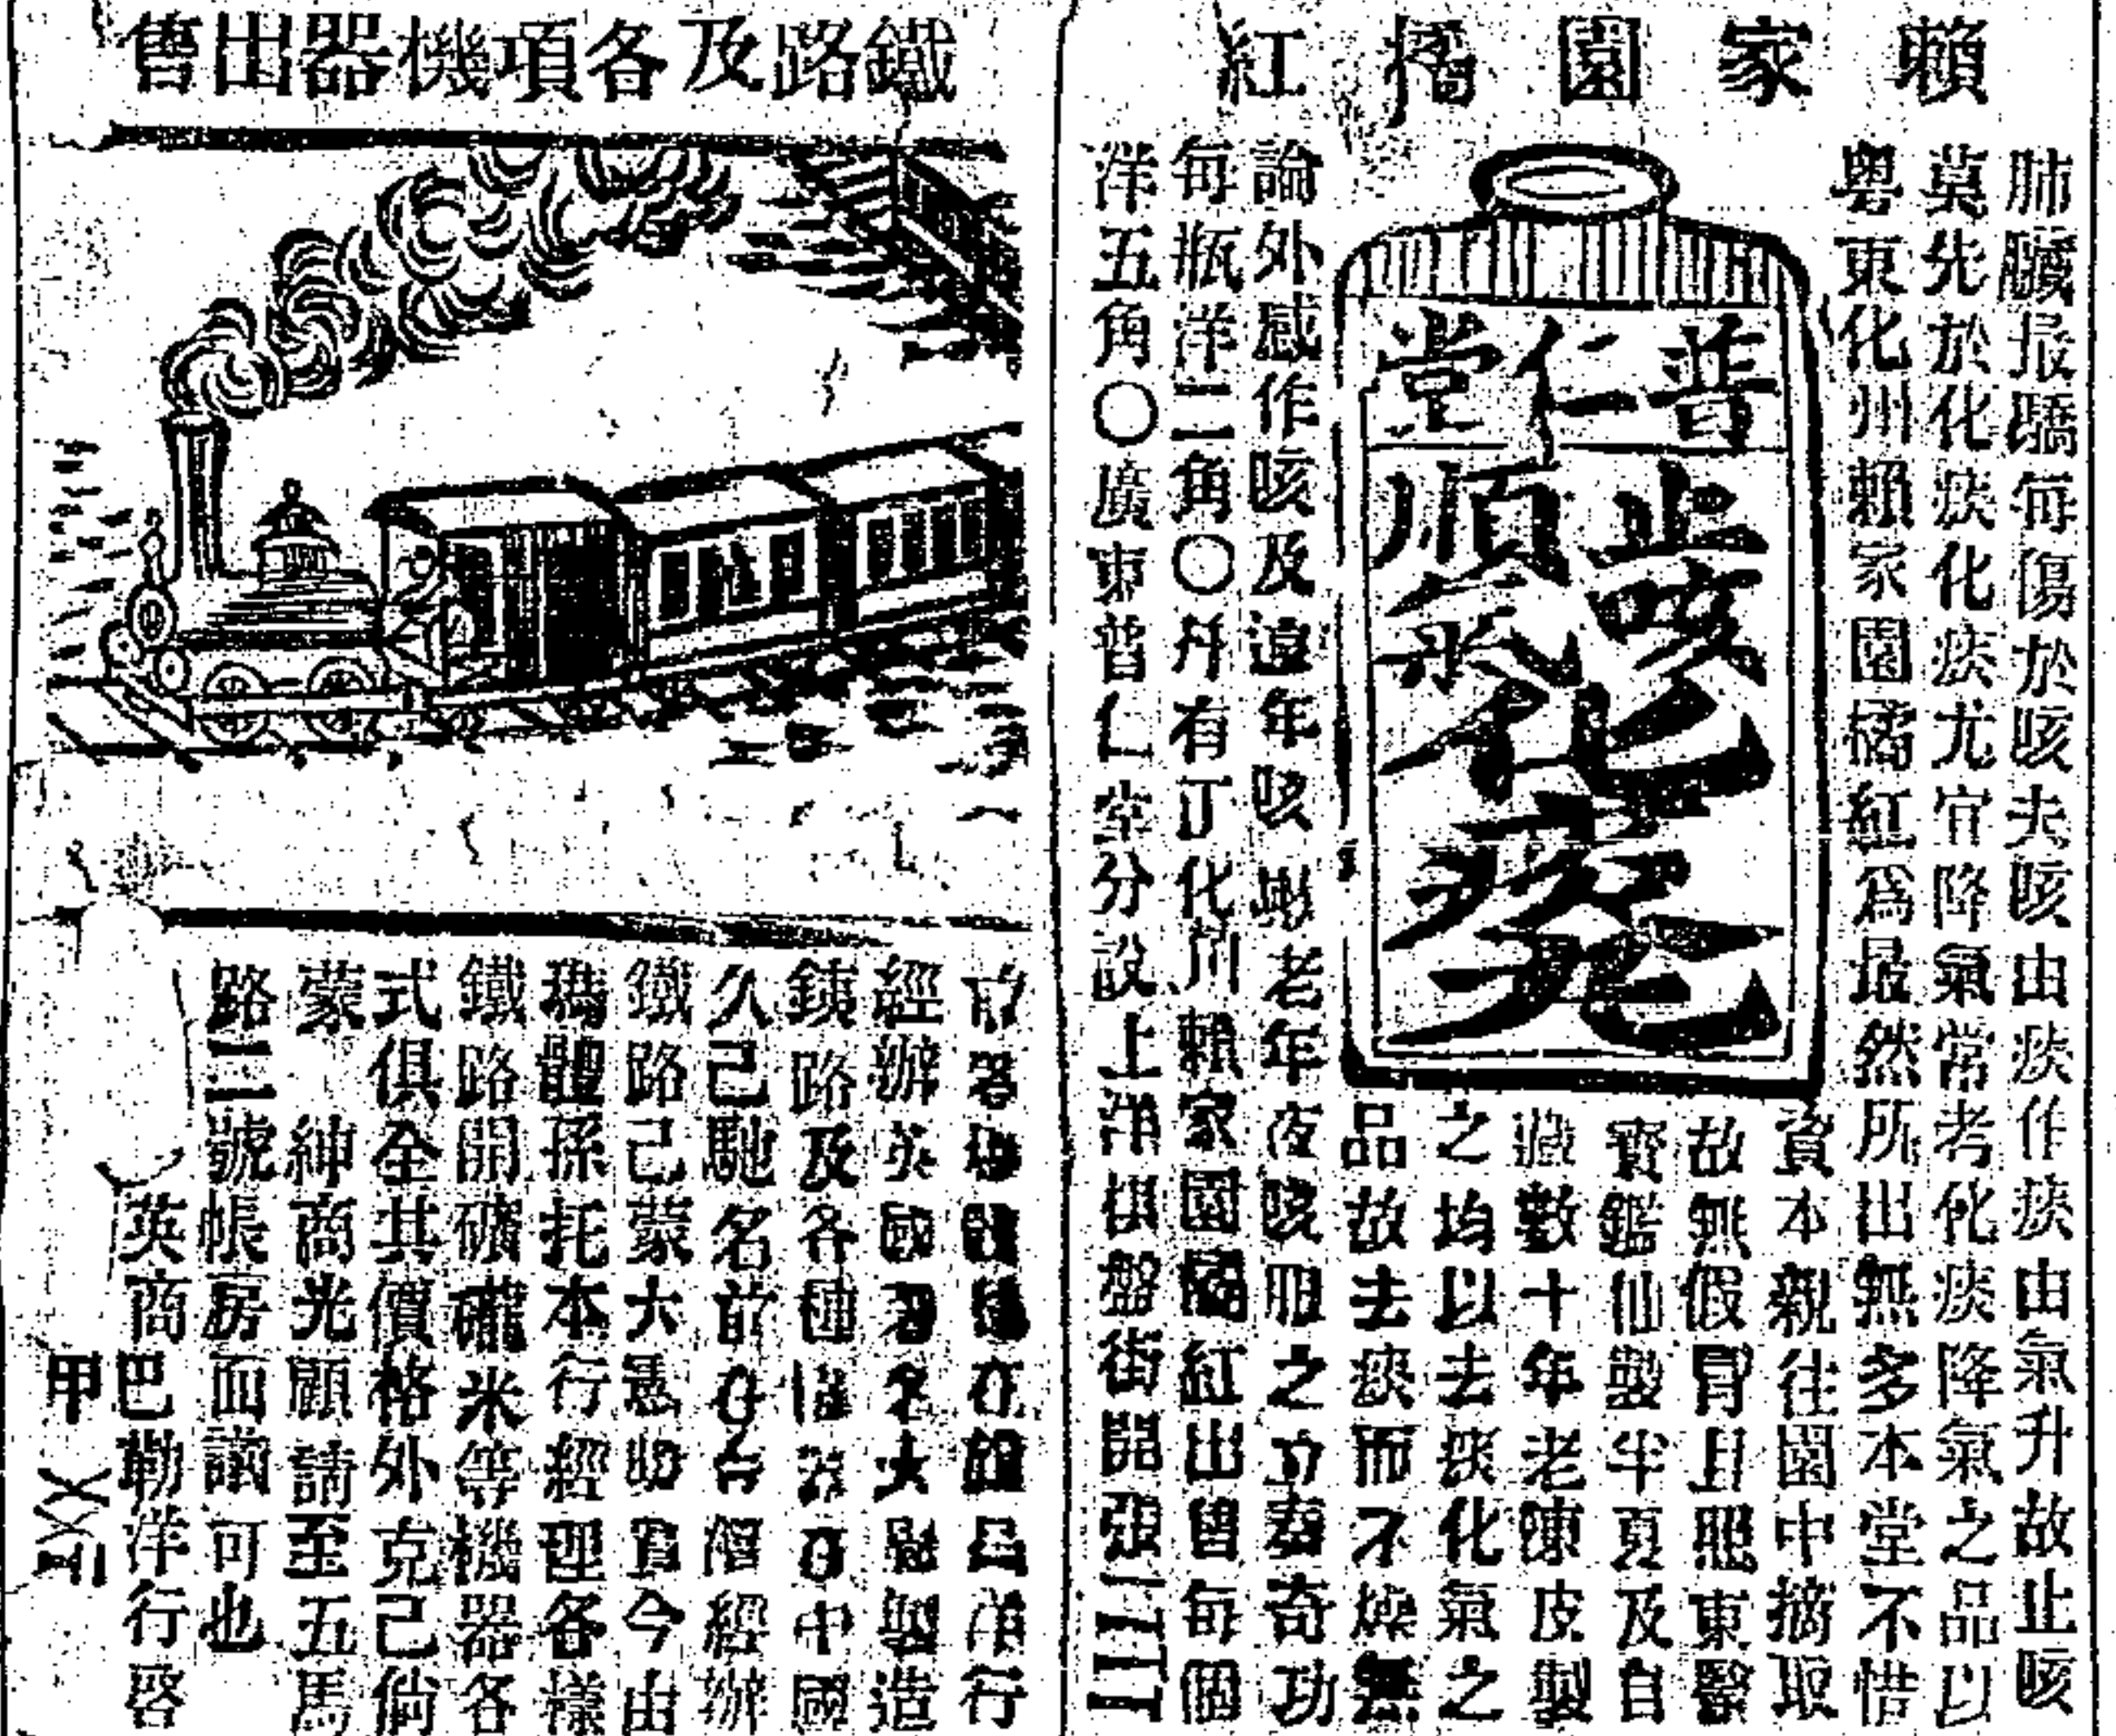 賴家園橘紅
肺臟最驕每傷於咳夫咳由痰作痰由氣升故止咳
莫先於化痰化痰尤宜降氣常考化痰降氣之品以
粵東化州賴家園橘紅爲最然所出無多本堂不惜
資本親往園中摘取
故無假冐且照東醫
寳鑑仙製半夏及自
藏數十年老陳皮製
之均以去痰化氣之
品故去痰而不燥無
普仁堂
止咳
順氣
化痰
論外感作咳及遠年咳老年夜咳服之立奏奇功
每瓶洋二角〇另有正化州賴家園橘紅出售每個
洋五角〇廣東普仁堂分設上洋棋盤街開張
鐵路及各項機器出售
洋行
經辦英國名大製造
鐵路及各種中國
久已馳名前經辦
鐵路已蒙大憲今由
孫托本行經理各樣
鐵路開礦礲米等機器各
式俱全其價格外克己倘
蒙
紳商光顧請至五馬
路二號帳房面議可也
英商巴勒洋行啓
甲